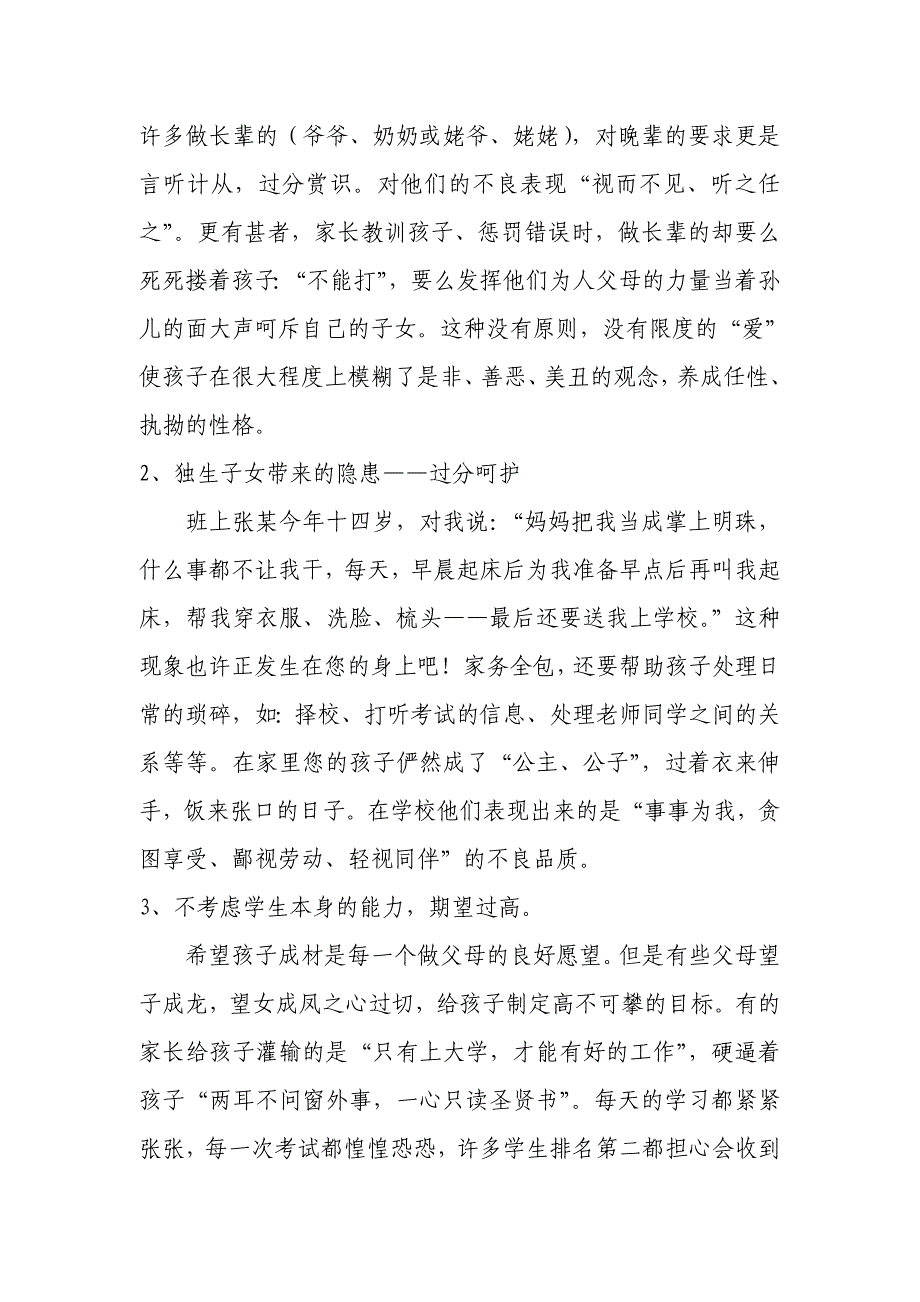 许多做长辈的（爷爷、奶奶或姥爷、姥姥），对晚辈的要求更是
言听计从，过分赏识。对他们的不良表现“视而不见、听之任
之”。更有甚者，家长教训孩子、惩罚错误时，做长辈的却要么
死死搂着孩子：“不能打”，要么发挥他们为人父母的力量当着孙
儿的面大声呵斥自己的子女。这种没有原则，没有限度的“爱”
使孩子在很大程度上模糊了是非、善恶、美丑的观念，养成任性、
执拗的性格。
2、独生子女带来的隐患——过分呵护
班上张某今年十四岁，对我说：“妈妈把我当成掌上明珠，
什么事都不让我干，每天，早晨起床后为我准备早点后再叫我起
床，帮我穿衣服、洗脸、梳头——最后还要送我上学校。”这种
现象也许正发生在您的身上吧！家务全包，还要帮助孩子处理日
常的琐碎，如：择校、打听考试的信息、处理老师同学之间的关
系等等。在家里您的孩子俨然成了“公主、公子”，过着衣来伸
手，饭来张口的日子。在学校他们表现出来的是“事事为我，贪
图享受、鄙视劳动、轻视同伴”的不良品质。
3、不考虑学生本身的能力，期望过高。
希望孩子成材是每一个做父母的良好愿望。但是有些父母望
子成龙，望女成凤之心过切，给孩子制定高不可攀的目标。有的
家长给孩子灌输的是“只有上大学，才能有好的工作”，硬逼着
孩子“两耳不问窗外事，一心只读圣贤书”。每天的学习都紧紧
张张，每一次考试都惶惶恐恐，许多学生排名第二都担心会收到